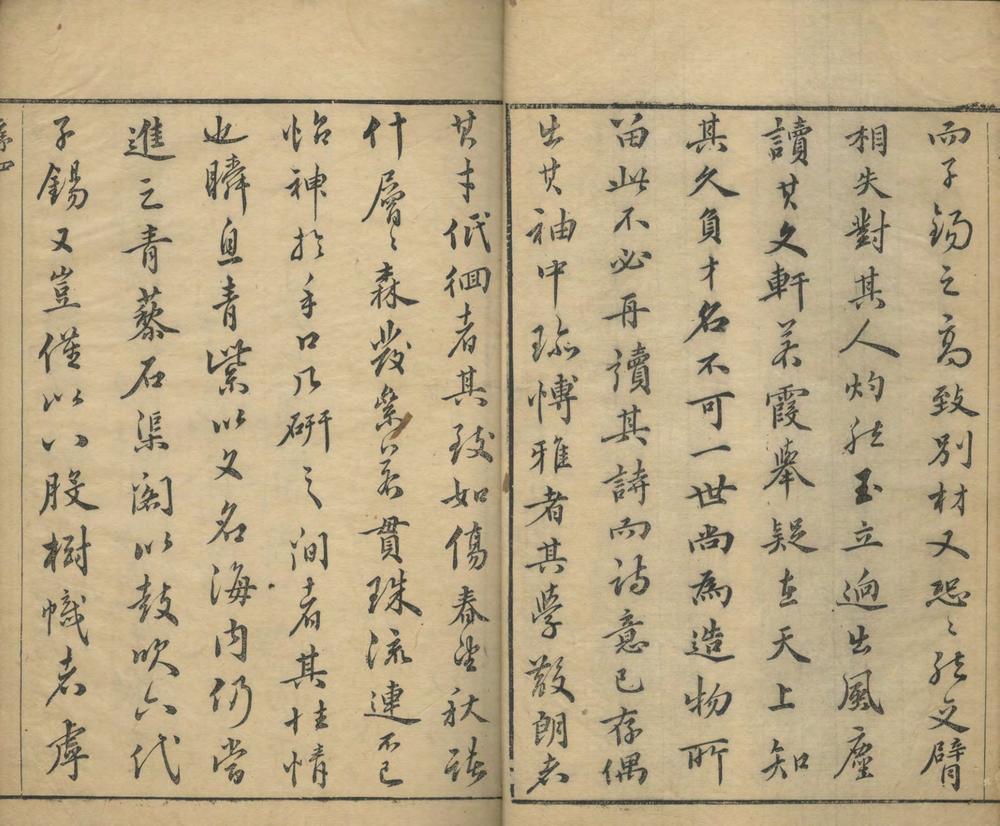 而子錫之高致別材又恐〻然交臂
相失對其人灼然玉立迥出風塵
讀其文軒若霞舉疑在天上知
其久負才名不可一世尚為造物所
留此不必再讀其詩而詩意已存偶
出其袖中琭慱雅者其學散朗者
其才低徊者其致如傷春望秋諸
什層〻森發纍若貫珠流連不已
怡神於手口乃研之間者其性情
也瞬息青紫以文名海內仍當
進之青藜石渠閣以鼓吹六代
子錫又豈僅以八股樹幟者虖
序四